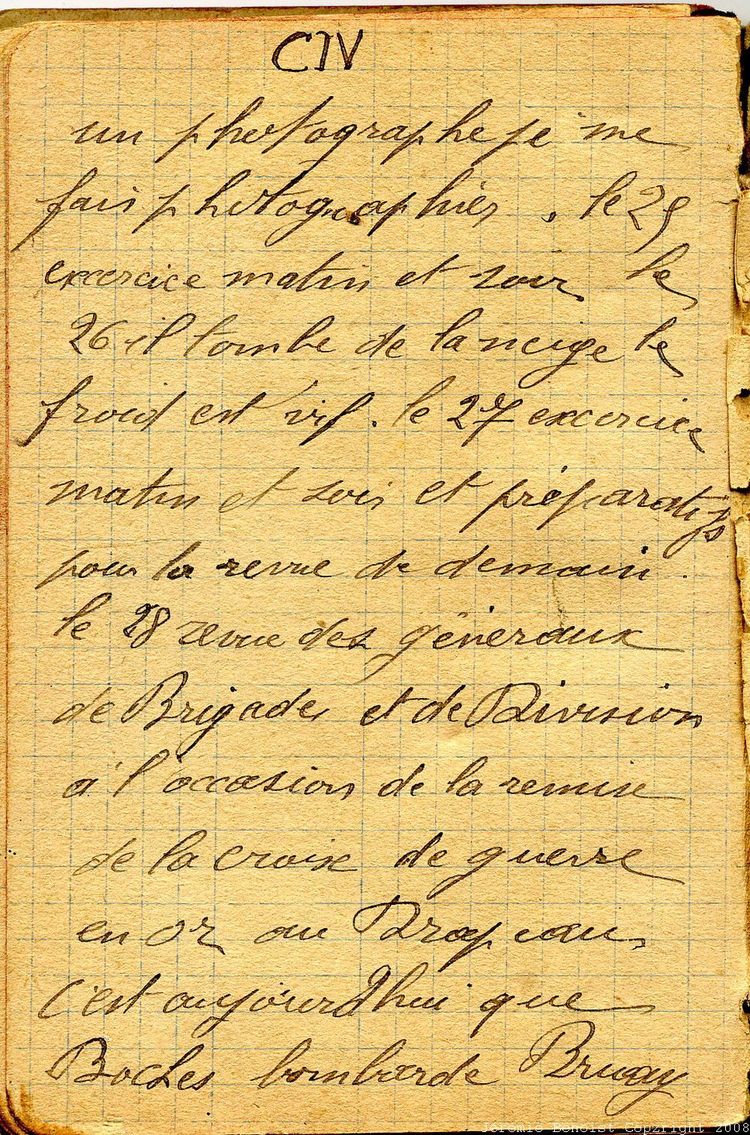 CIV
un photographe je me
fais photographier. le 25
excercice matin et soir le
26 il tombe de la neige le
froid est vif. le 27 excercice
matin et soir et préparatifs
pour la revue de demain.
le 28 revue des généraux
de Brigades et de Division
à l'occasion de la remise
de la croix de guerre
en or au Drapeau
c'est aujourd'hui que
Boches bombarde Bruay
Jeremie Benoist Copyright 2008